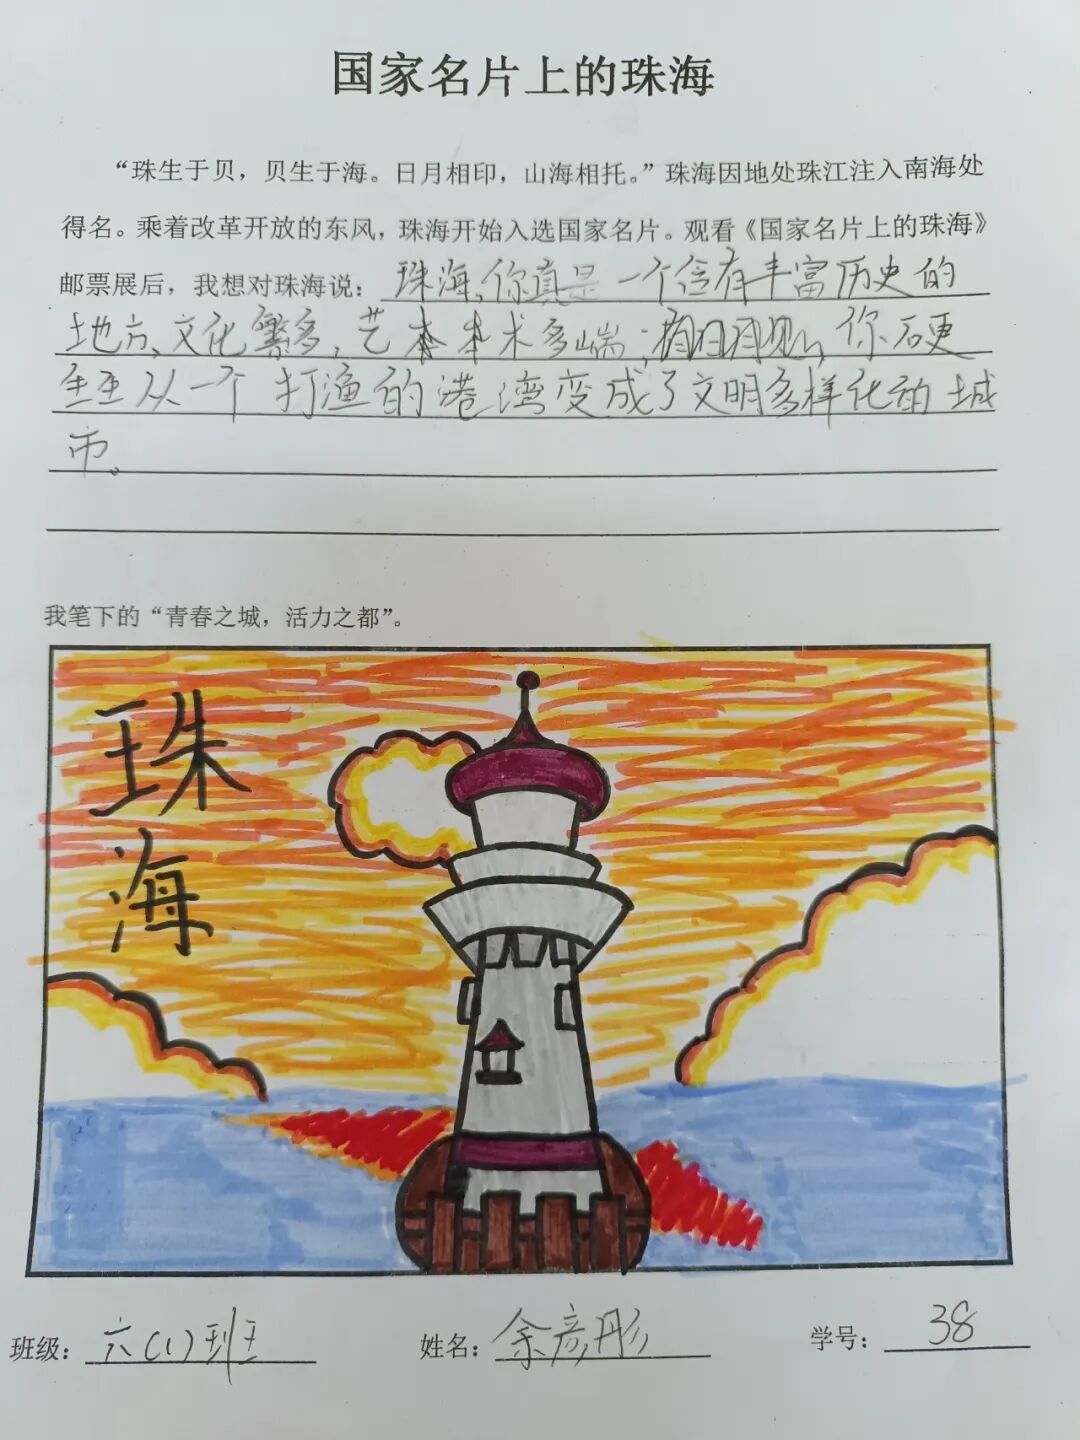 国家名片上的珠海
“珠生于贝，贝生于海。日月相印，山海相托。”珠海因地处珠江注入南海处
得名。乘着改革开放的东风，珠海开始入选国家名片。观看《国家名片上的珠海》
邮票展后，我想对珠海说：珠海，你真是一个含有丰富历史的
地方、文化繁多，艺术多端；日月见，你硬
生生从一个打渔的港湾变成了文明多样化的城
市。
我笔下的“青春之城，活力之都”。
珠
海
班级：六(1)班 姓名：余彦彤 学号：38